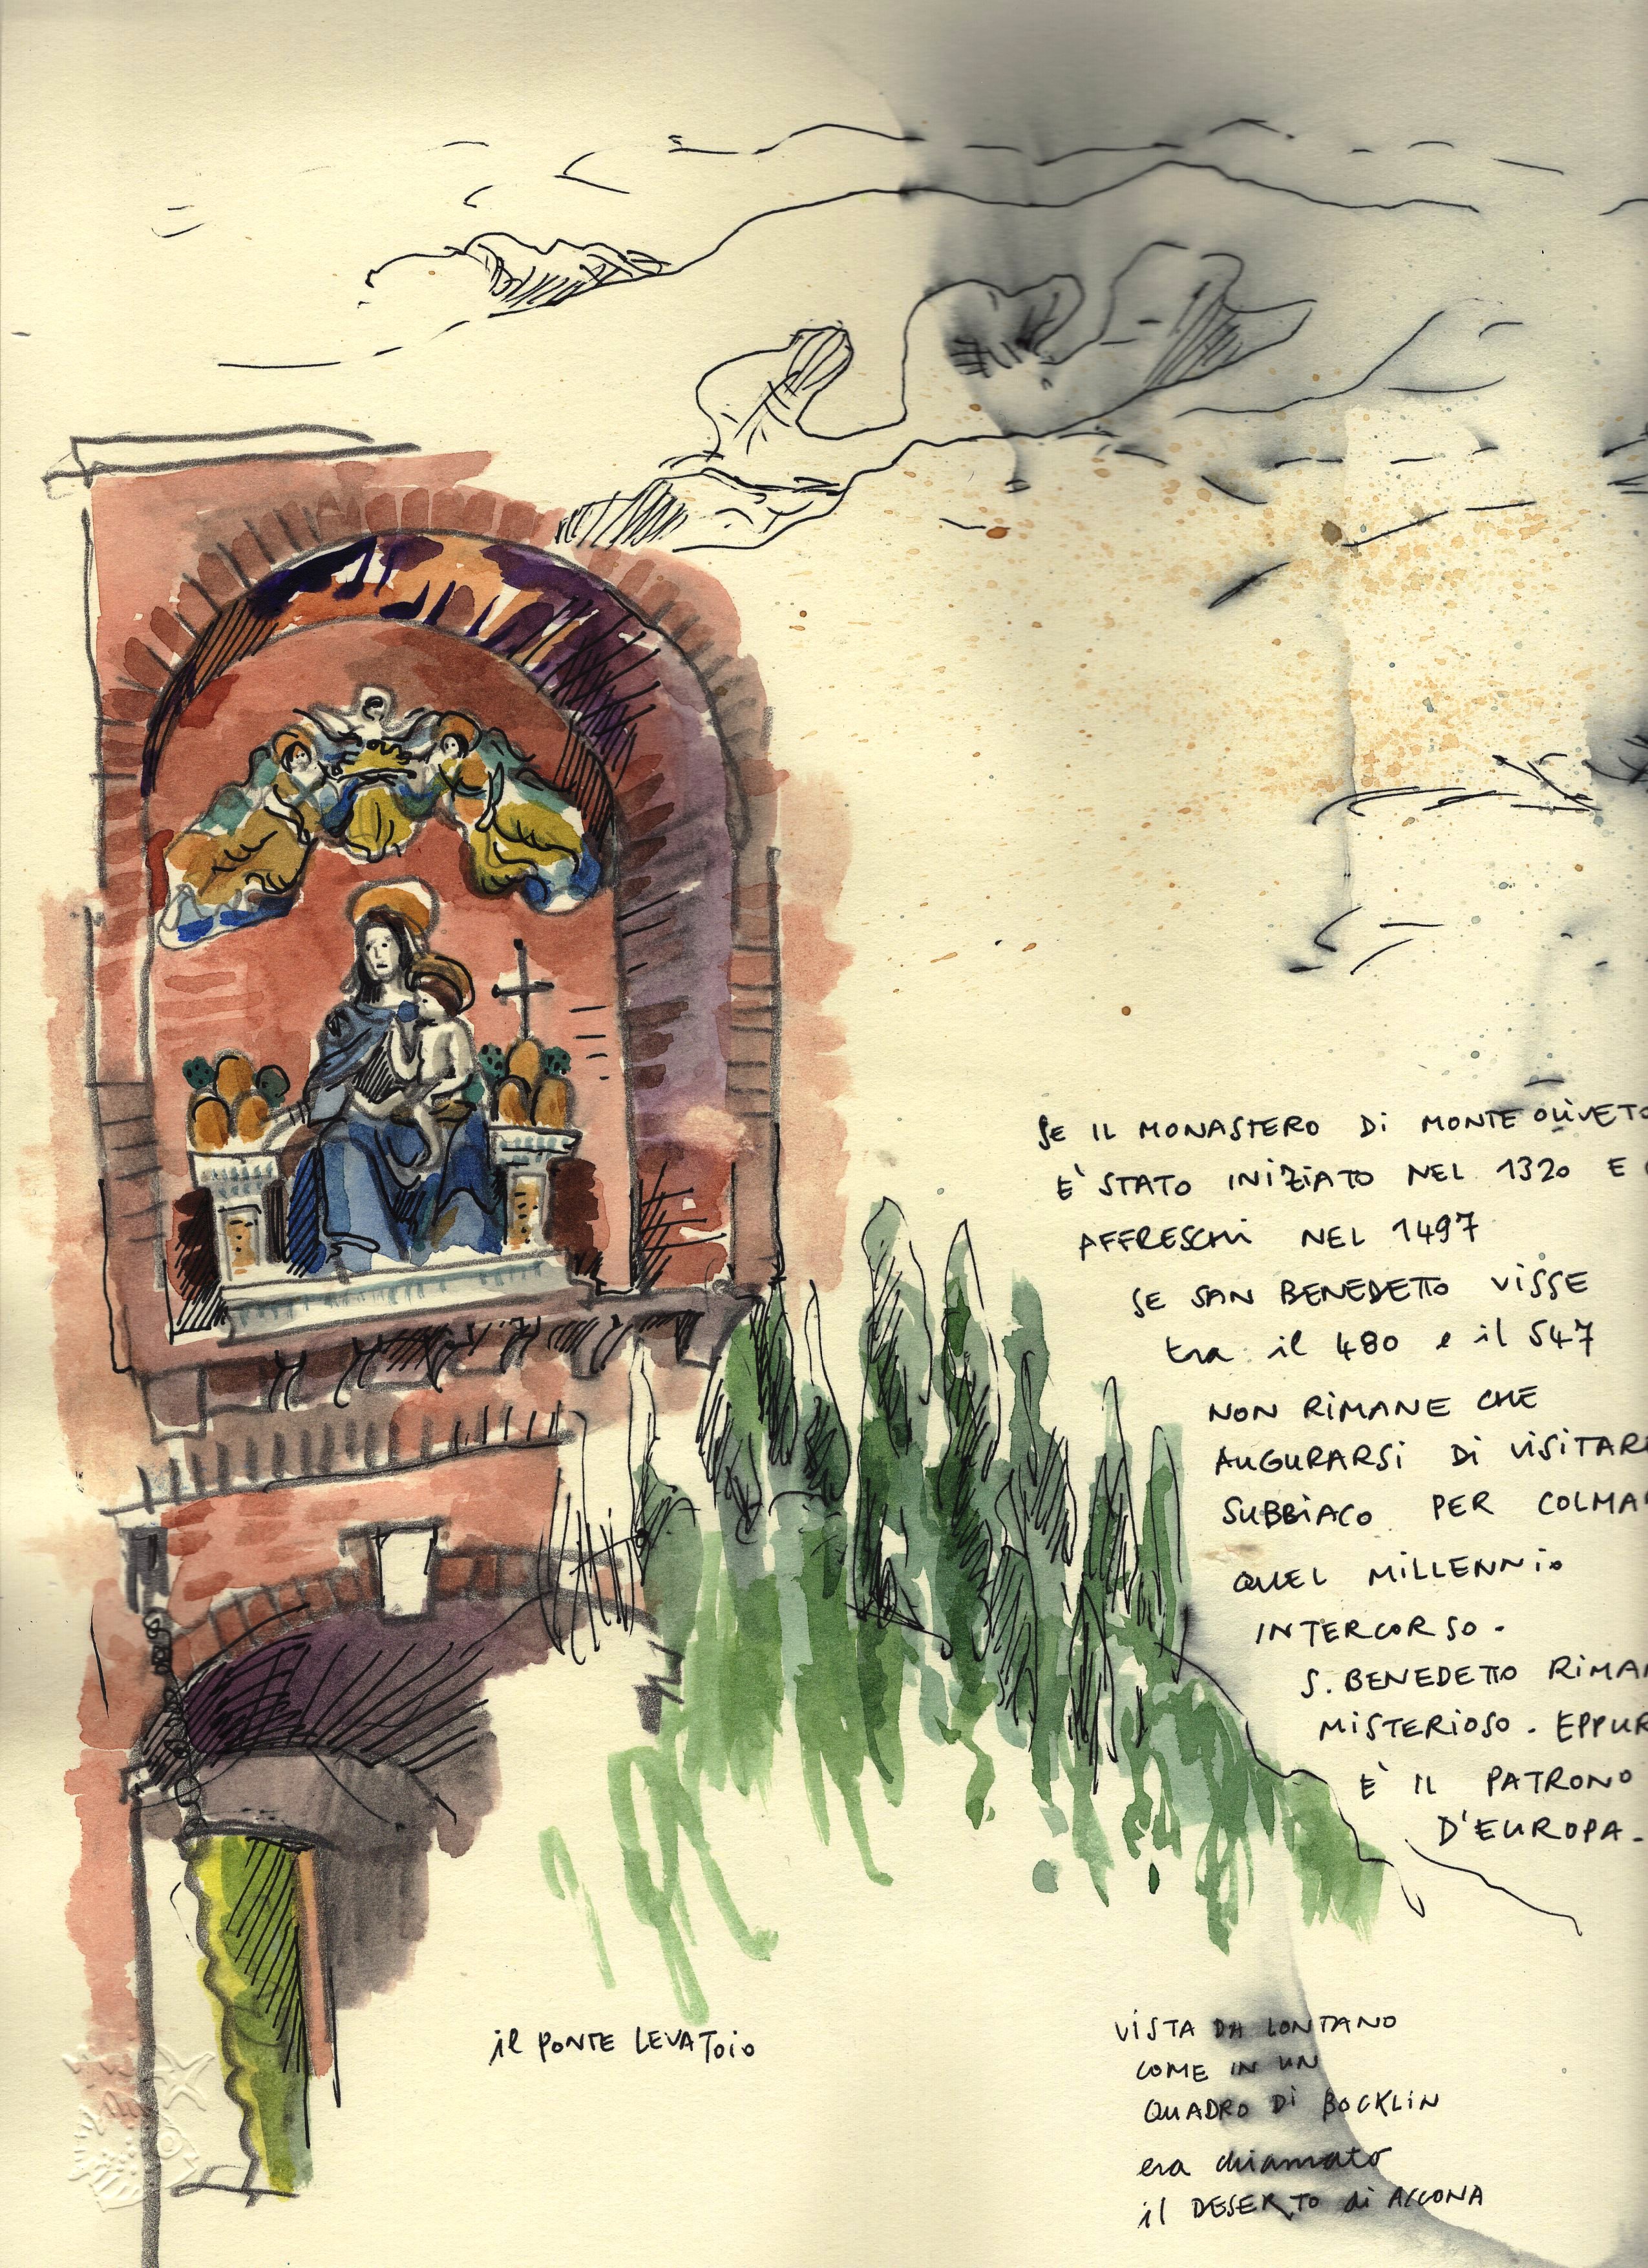 SE IL MONASTERO DI MONTE OLIVETO
E' STATO INIZIATO NEL 1320 E
AFFRESCHI NEL 1497
SE SAN BENEDETTO VISSE
tra il 480 e il 547
NON RIMANE CHE
AUGURARSI DI VISITAR
SUBBIACO PER COLMA
QUEL MILLENNIO
INTERCORSO.
S. BENEDETTO RIMA
MISTERIOSO. EPPUR
E' IL PATRONO
D'EUROPA.
il PONTE LEVATOIO
VISTA DA LONTANO
COME IN UN
QUADRO DI BOCKLIN
era chiamato
il DESERTO di ACCONA